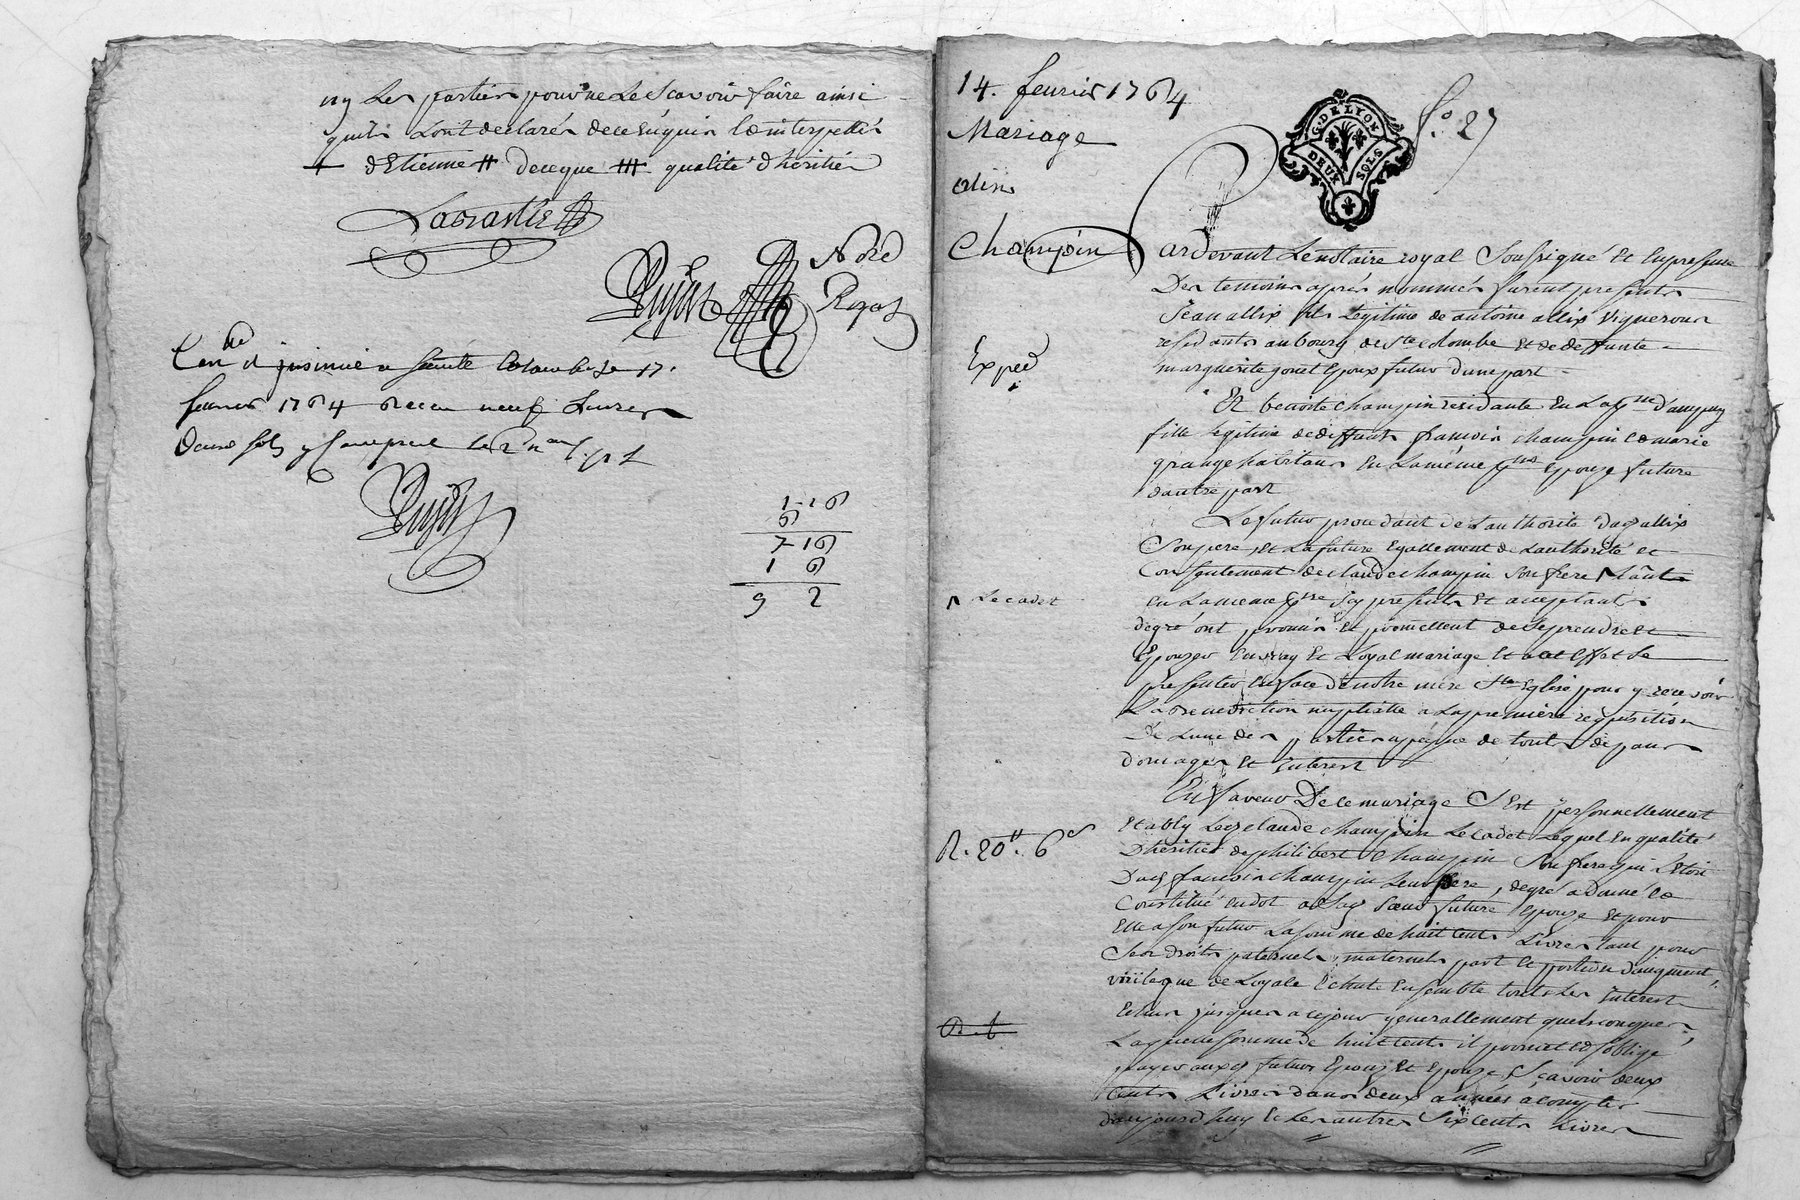 ny les parties pour ne le scavoir faire ainsi
quils l'ont declarés de ce enquis & interpellés
d'Etienne # de ce que ## qualité d'heritier
Nore
Royal
Con.lle et insinué a sainte Colombe le 17.
fevrier 1764 Receu neuf Livres
deux sols y compris les
1-16
6
7-16
1 6
9 2
14. fevrier 1764
Mariage
alix
Champin
Exped
^ Le cadet
R. 20tt. 6s
R. 6
G. DE LYON
DEUX SOLS
fo. 27
Pardevant Le notaire royal Soussigné et En presence
Des temoins aprés nommés furent presents
Jean allix fils Legitime de antoine allix vigneron
residants au bourg de Ste Colombe et de deffunte
marguerite gonet Epoux futur d'une part
Et benoite champin residante En la psse d'ampuy
fille Legitime de deffunts francois champin & marie
grange habitans En La même psse Epouze future
d'autre part
Le futur procedant de L'authorité dud allix
Son pere, et La future Egallement de L'authorité et
Consentement de claude champin Son frere ^
En La meme psse icy presents Et acceptants
de gré ont promis Et promettent de se prendre Et
Epouzer En vray Et Loyal mariage Et a cet Effet Se
presenter En face de notre mere Ste Eglise pour y recevoir
La Benediction nuptialle a La premiere requisition
De L'une des parties a peine de touts dépans
domages Et interest
En faveur De ce mariage S'Est personnellement
Etably Led claude champin Le cadet Lequel En qualité
D'heritier de philibert Champin Son frere qui L'étoit
Dud francois champin Leur pere, de gré a donné &
Constitué En dot a Lad Sœur future Epouze Et pour
Elle a Son futur La somme de huit cents Livres tant pour
Ses droits paternels, maternels part Et portion d'augment,
virilleque de Loyale Echute Ensemble touts Les interest
Echus jusques a ce jour generallement quelsconques,
Laquelle somme de huit cents il promet & s'oblige
payer auxd futurs Epoux Et Epouze Scavoir deux
Cents Livres dans deux années a compter
d'aujourd'huy Et Les autres Six cents Livres